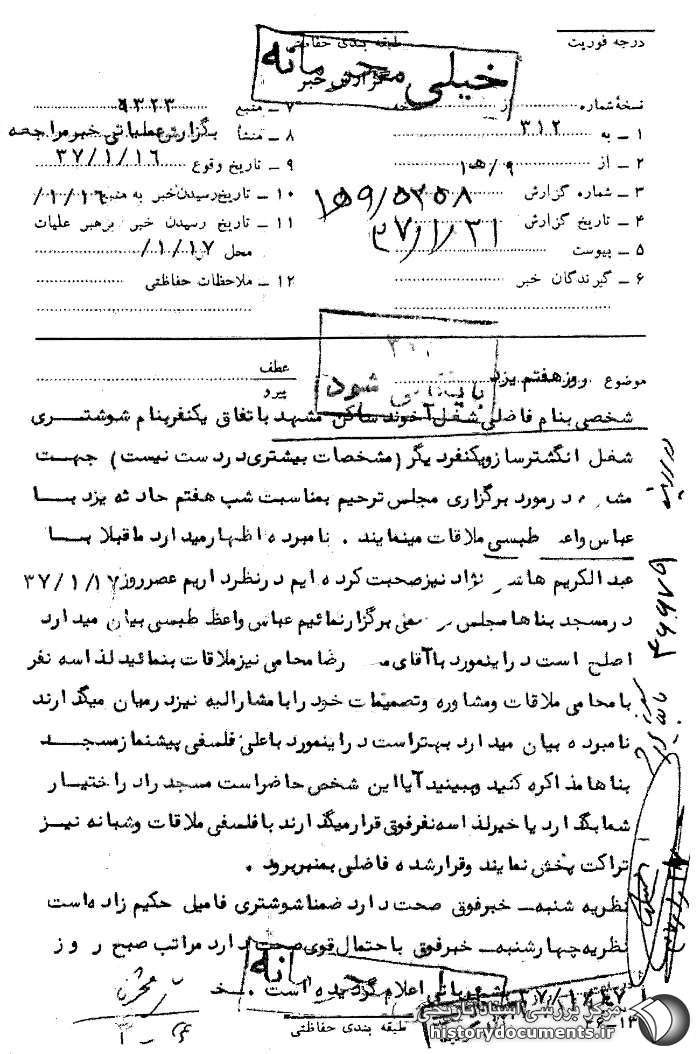 درجه فوریت
طبقه بندی حفاظتی
خیلی محرمانه
گزارش خبر
نسخهٔ شماره از نسخه
۱ ـ به ۳۱۲
۲ ـ از ۱۵/ﻫ ۹
۳ ـ شماره گزارش ۱۵۹/۵۲۵۸
۴ ـ تاریخ گزارش ۳۷/۱/۳۱
۵ ـ پیوست
۶ ـ گیرندگان خبر
۷ ـ منبع ۹۳۲۳
۸ ـ منشأ بگزارش عملیاتی خبر مراجعه
۹ ـ تاریخ وقوع ۳۷/۱/۱۶
۱۰ ـ تاریخ رسیدن خبر به منبع ۱/۱۶/
۱۱ ـ تاریخ رسیدن خبر برهبر عملیات
محل ۱/۱۷/
۱۲ ـ ملاحظات حفاظتی
موضوع روز هفتم یزد
عطف
پیرو
بایگانی شود
شخصی بنام فاضلی شغل آخوند ساکن مشهد باتفاق یکنفر بنام شوشتری
شغل انگشتر ساز و یکنفر دیگر (مشخصات بیشتری در دست نیست) جهت
در مورد برگزاری مجلس ترحیم بمناسبت شب هفتم حادثه یزد بـا
عباس واعظ طبسی ملاقات مینمایند . نامبرده اظهار میدارد ما قبلا بـا
عبدالکریم هاشمی نژاد نیز صحبت کرده ایم در نظر داریم عصر روز ۳۷/۱/۱۷
در مسجد بناها مجلس برگزار نمائیم عباس واعظ طبسی بیان میدارد
اصلح است در اینمورد با آقای رضا محامی نیز ملاقات بنمائید لذا سه نفر
با محامی ملاقات و مشاوره و تصمیمات خود را با مشارالیه نیز در میان میگذارند
نامبرده بیان میدارد بهتر است در اینمورد با علی فلسفی پیشنماز مسجـد
بناها مذاکره کنید و ببینید آیا این شخص حاضر است مسجد را در اختیـار
شما بگذارد یا خیر لذا سه نفر فوق قرار میگذارند با فلسفی ملاقات و شبانه نیـز
تراکت پخش نمایند و قرار شده فاضلی بمنبر برود .
نظریه شنبه ـ خبر فوق صحت دارد ضمنا شوشتری فامیل حکیم زاده است
نظریه چهارشنبه ـ خبر فوق با احتمال قوی صحت دارد مراتب صبح روز
۳۷/۱/۱۷ اعلام گردیده است .
خیلی محرمانه
طبقه بندی حفاظتی
مرکز بررسی اسناد تاریخی
historydocuments.ir